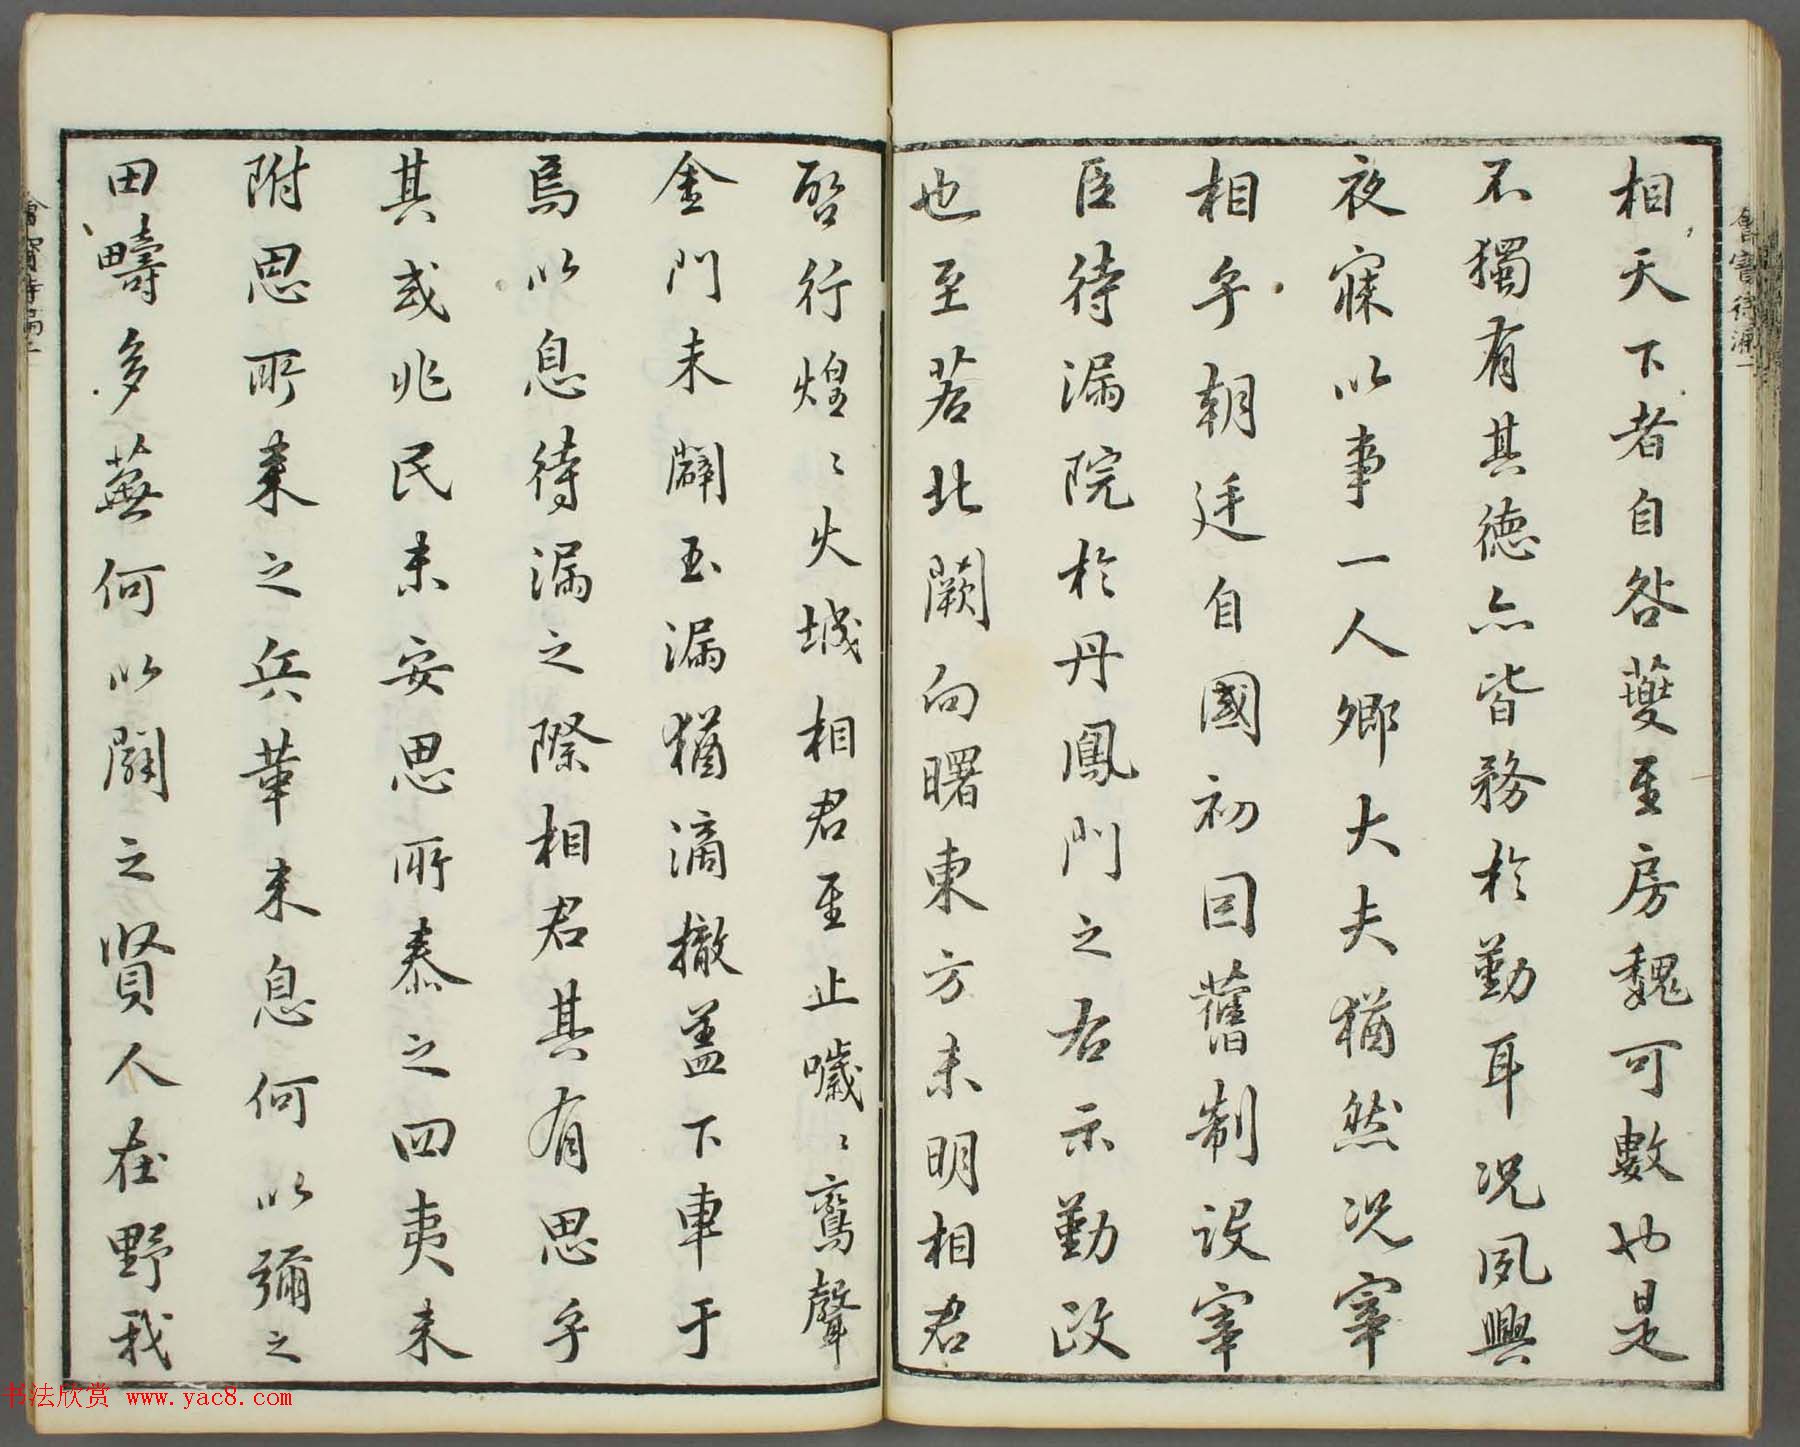 相天下者自咎夔至房魏可數也是
不獨有其德亦皆務於勤耳況夙興
夜寐以事一人卿大夫猶然況宰
相乎朝廷自國初因舊制設宰
臣待漏院於丹鳳門之右示勤政
也至若北闕向曙東方未明相君
啓行煌〻火城相君至止噦〻鸞聲
金門未闢玉漏猶滴撤蓋下車于
焉以息待漏之際相君其有思乎
其或兆民未安思所泰之四夷未
附思所来之兵革未息何以彌之
田疇多蕪何以闢之賢人在野我
書法欣赏 www.yac8.com